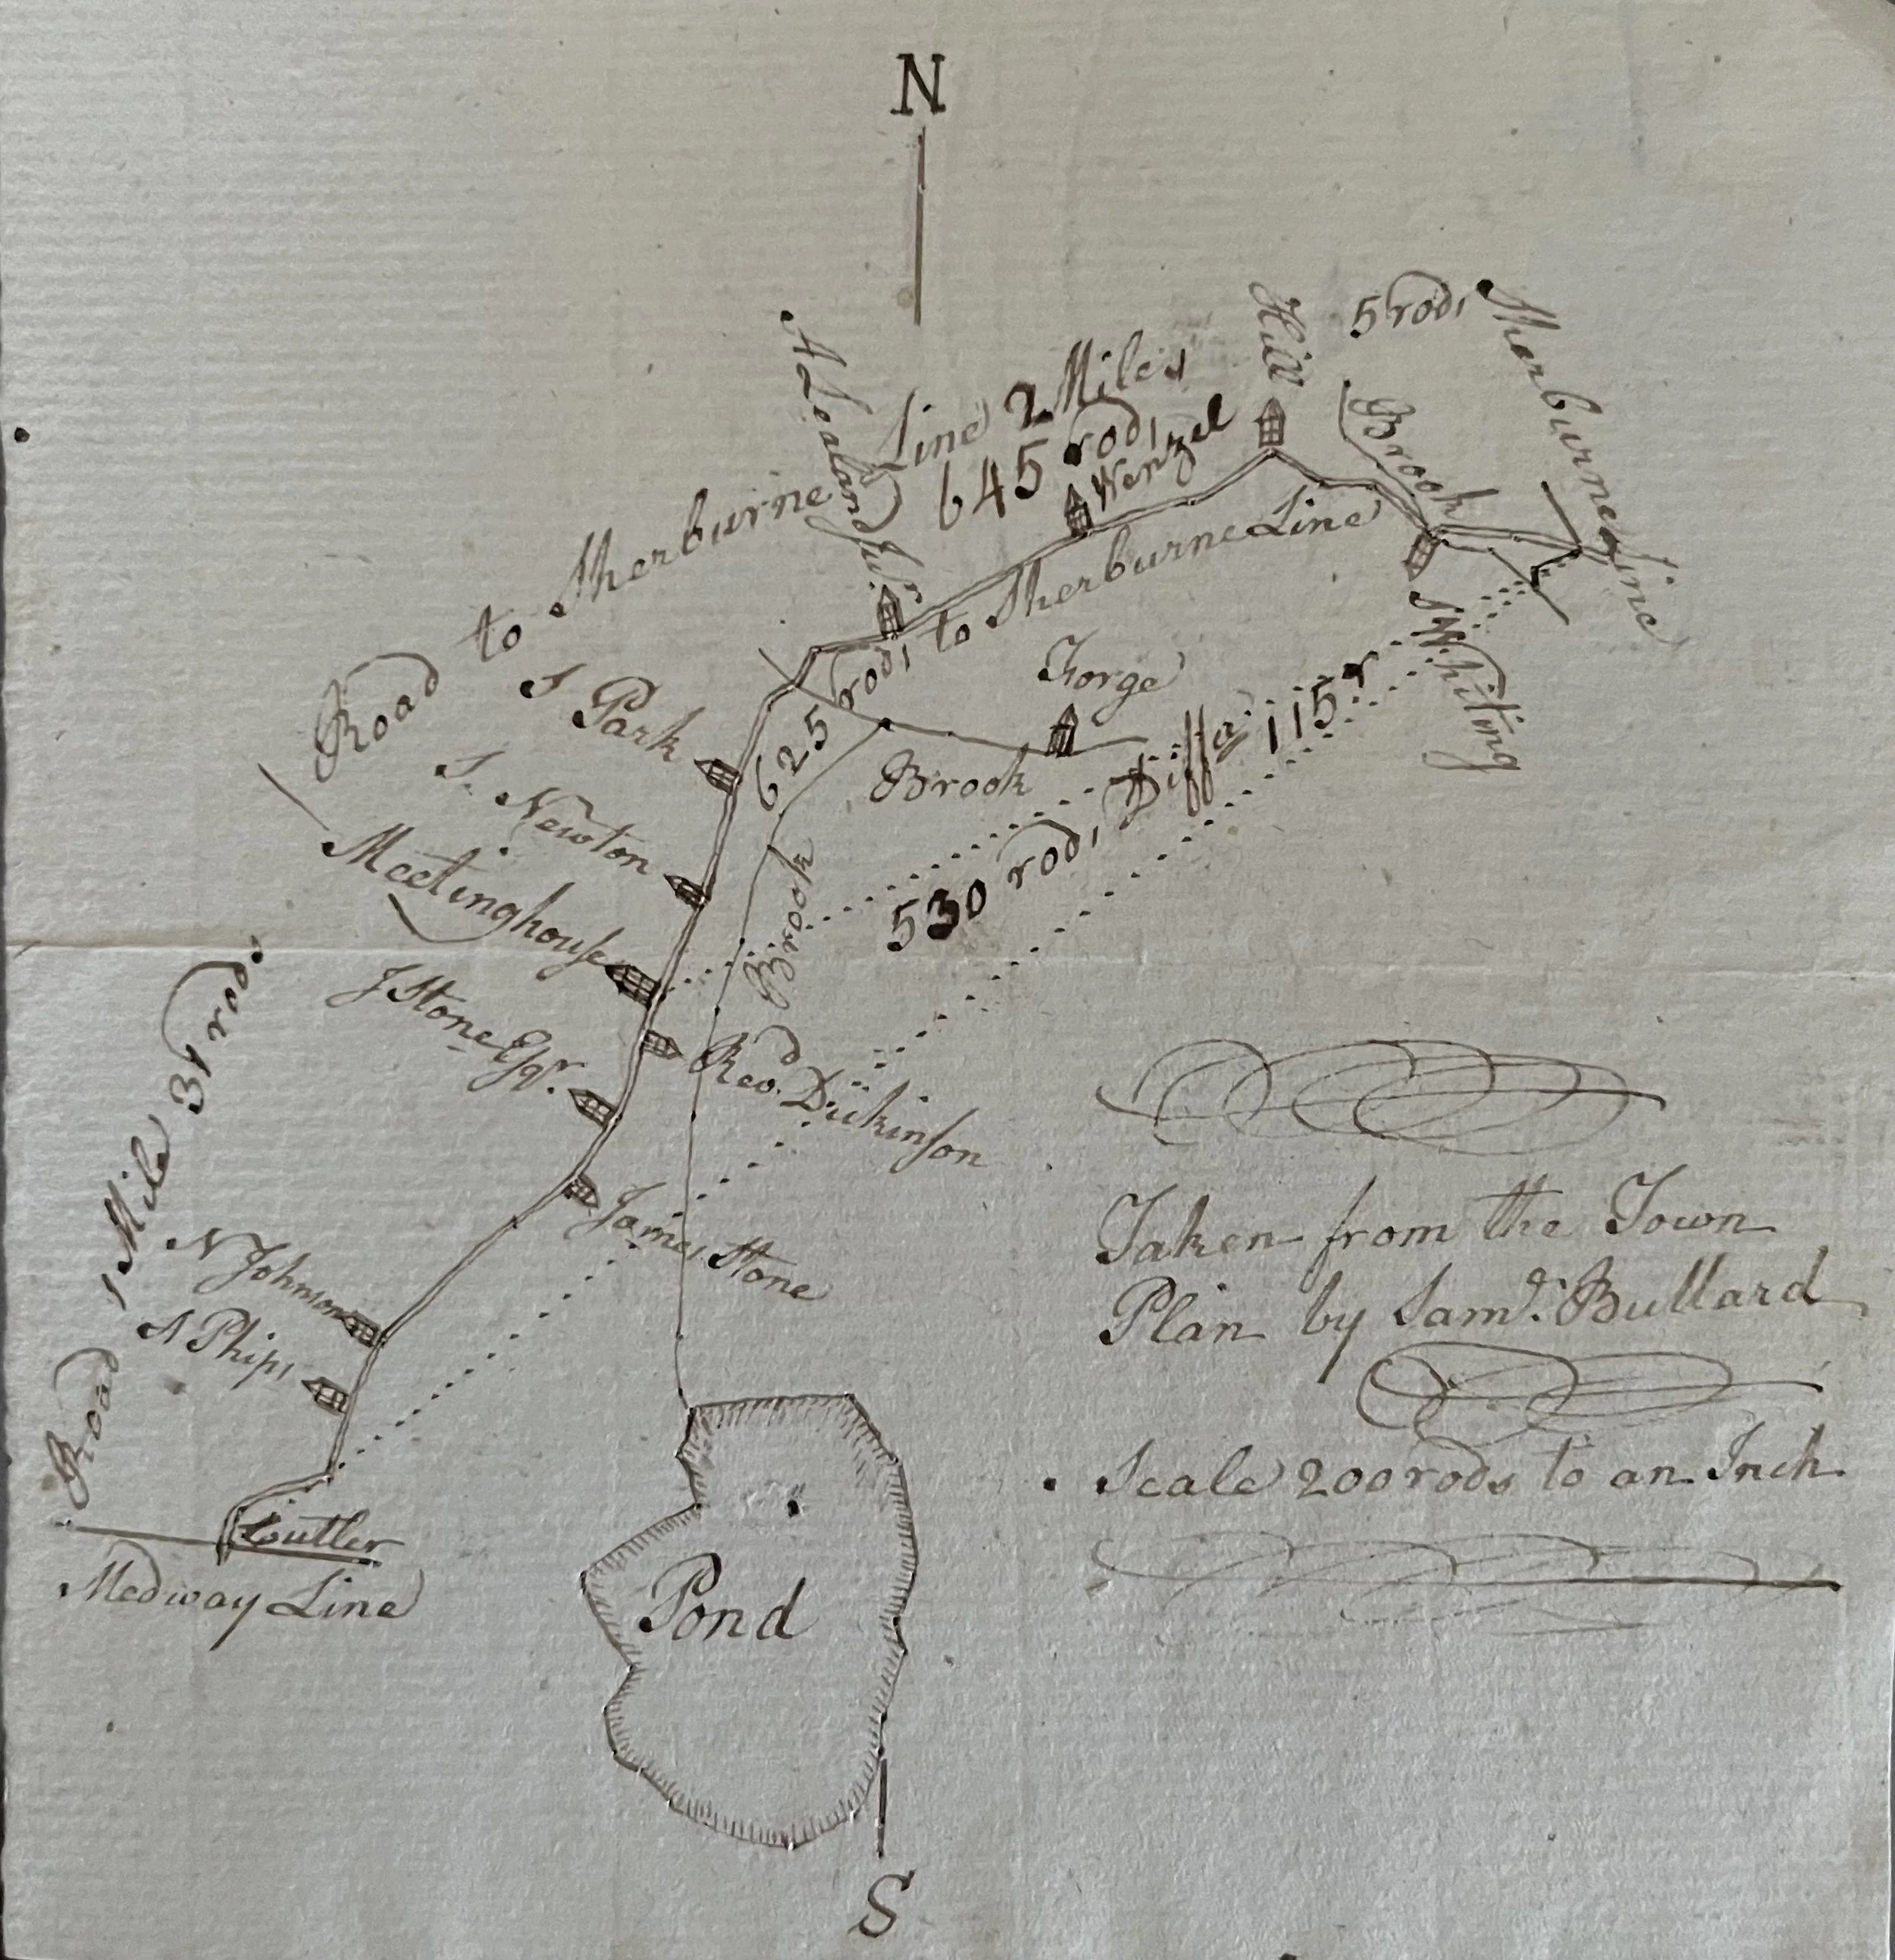 N
5 rods
Sherburne Line
Hill
Brook
Road to Sherburne Line 2 Miles
645 rods
A Lealand Jur.
Wenzel
625 rods to Sherburne Line
S Whiting
Forge
Brook
S Park
S. Newton
Meetinghouse
530 rods Differ 115 r
Brook
J Stone Esqr.
Revd. Dickinson
James Stone
Road 1 Mile 31 rods
N Johnson
A Phips
Cutler
Medway Line
Pond
Taken from the Town
Plan by Saml. Bullard
Scale 200 rods to an Inch
S